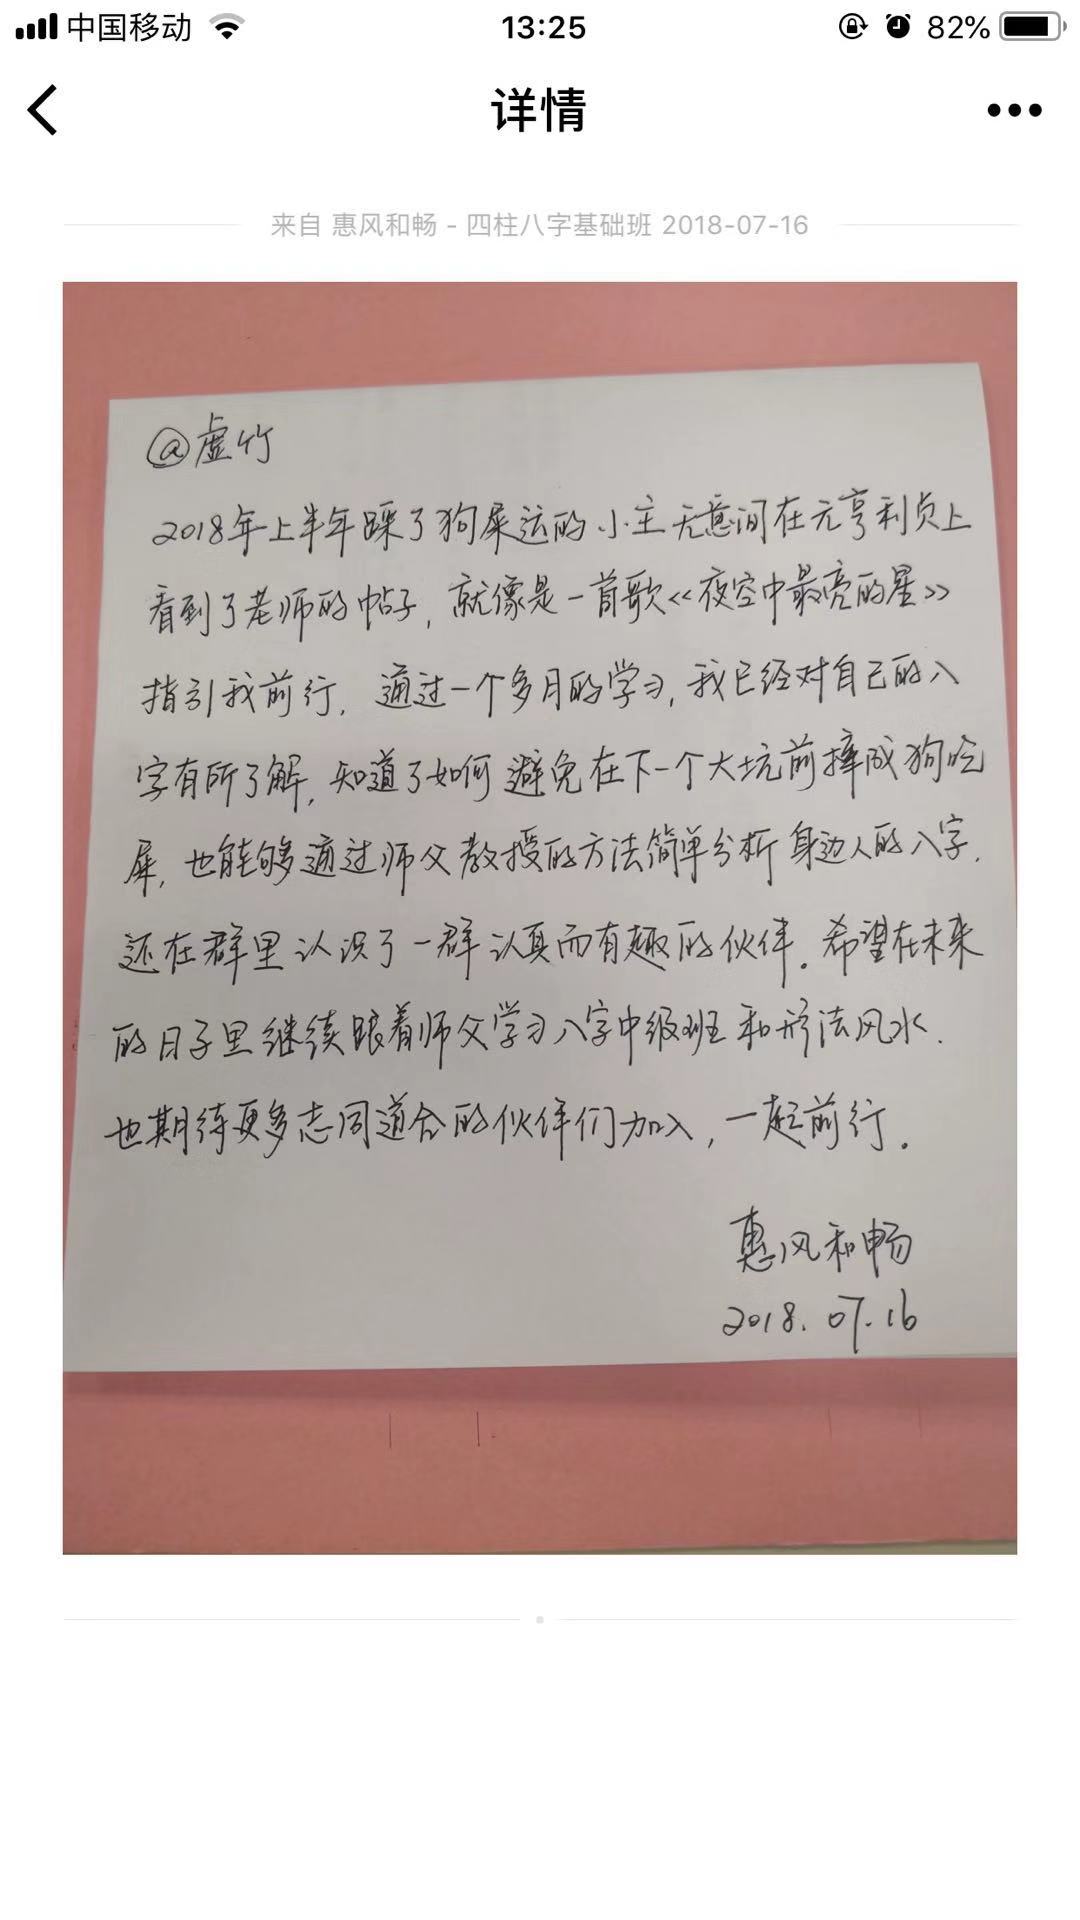 中国移动 13:25 82%
详情
来自 惠风和畅 - 四柱八字基础班 2018-07-16
@虚竹
2018年上半年踩了狗屎运的小主无意间在元亨利贞上
看到了老师的帖子，就像是一首歌<<夜空中最亮的星>>
指引我前行. 通过一个多月的学习, 我已经对自己的八
字有所了解, 知道了如何避免在下一个大坑前摔成狗吃
屎, 也能够通过师父教授的方法简单分析身边人的八字.
还在群里认识了一群认真而有趣的伙伴。希望在未来
的日子里继续跟着师父学习八字中级班和形法风水.
也期待更多志同道合的伙伴们加入，一起前行。
惠风和畅
2018.07.16